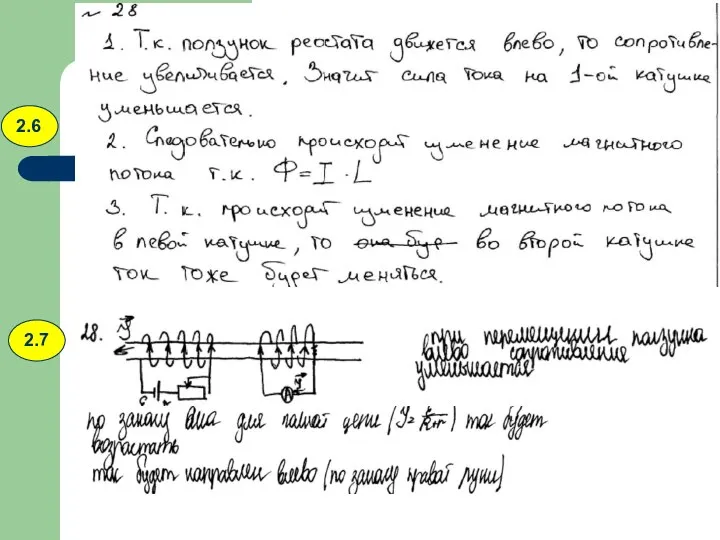 ~ 28
1. Т.к. ползунок реостата движется влево, то сопротивле-
ние увеличивается. Значит сила тока на 1-ой катушке
уменьшается.
2.6
2. Следовательно происходит изменение магнитного
потока т.к. Ф = I · L
3. Т.к. происходит изменение магнитного потока
в левой катушке, то она буд во второй катушке
ток тоже будет меняться.
2.7
28.
A
при перемещении ползунка
влево сопротивление
уменьшается
по закону Ома для полной цепи ( ) ток будет
возрастать
ток будет направлен влево (по закону правой руки)